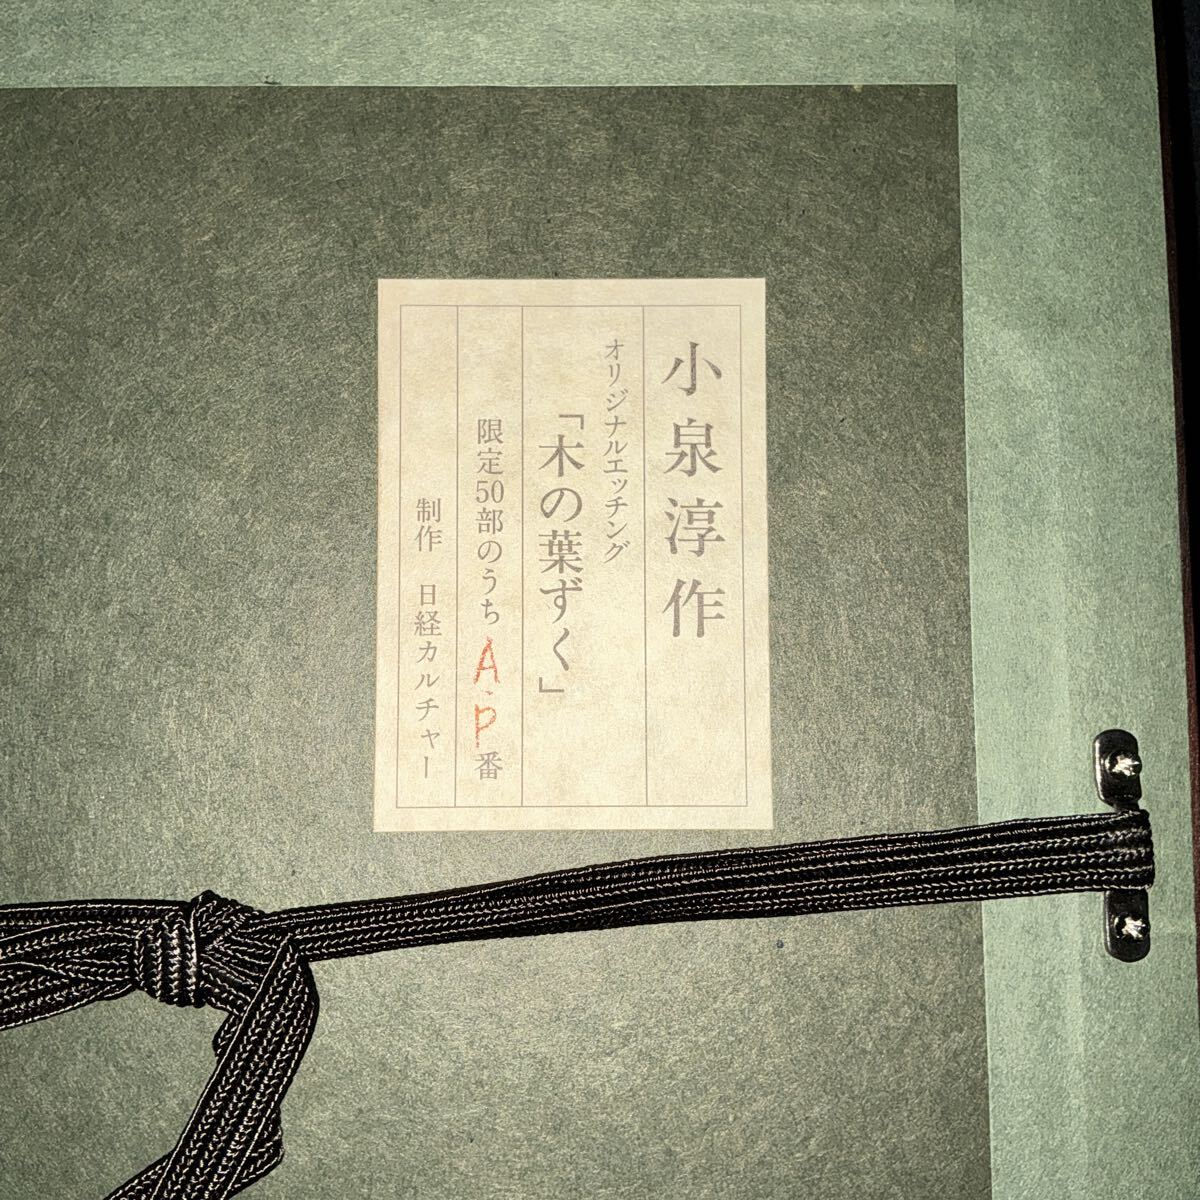 小泉淳作
オリジナルエッチング
「木の葉ずく」
限定50部のうち A.P 番
制作 日経カルチャー